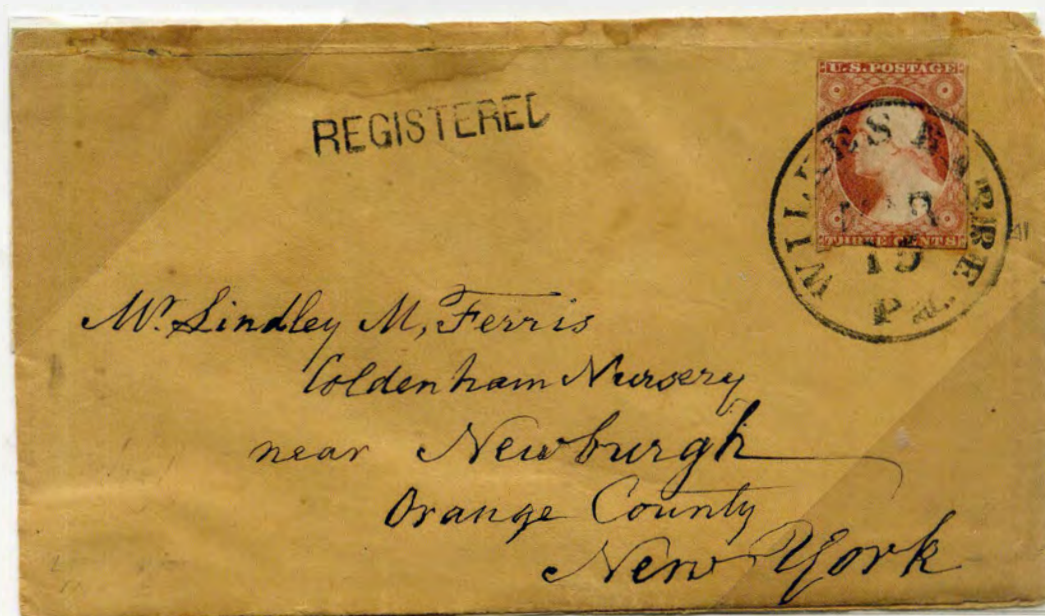 REGISTERED
U.S. POSTAGE
THREE CENTS
WILKESBARRE PA.
MAR
15
Mr. Lindley M, Ferris
Coldenham Nursery
near Newburgh
Orange County
New York